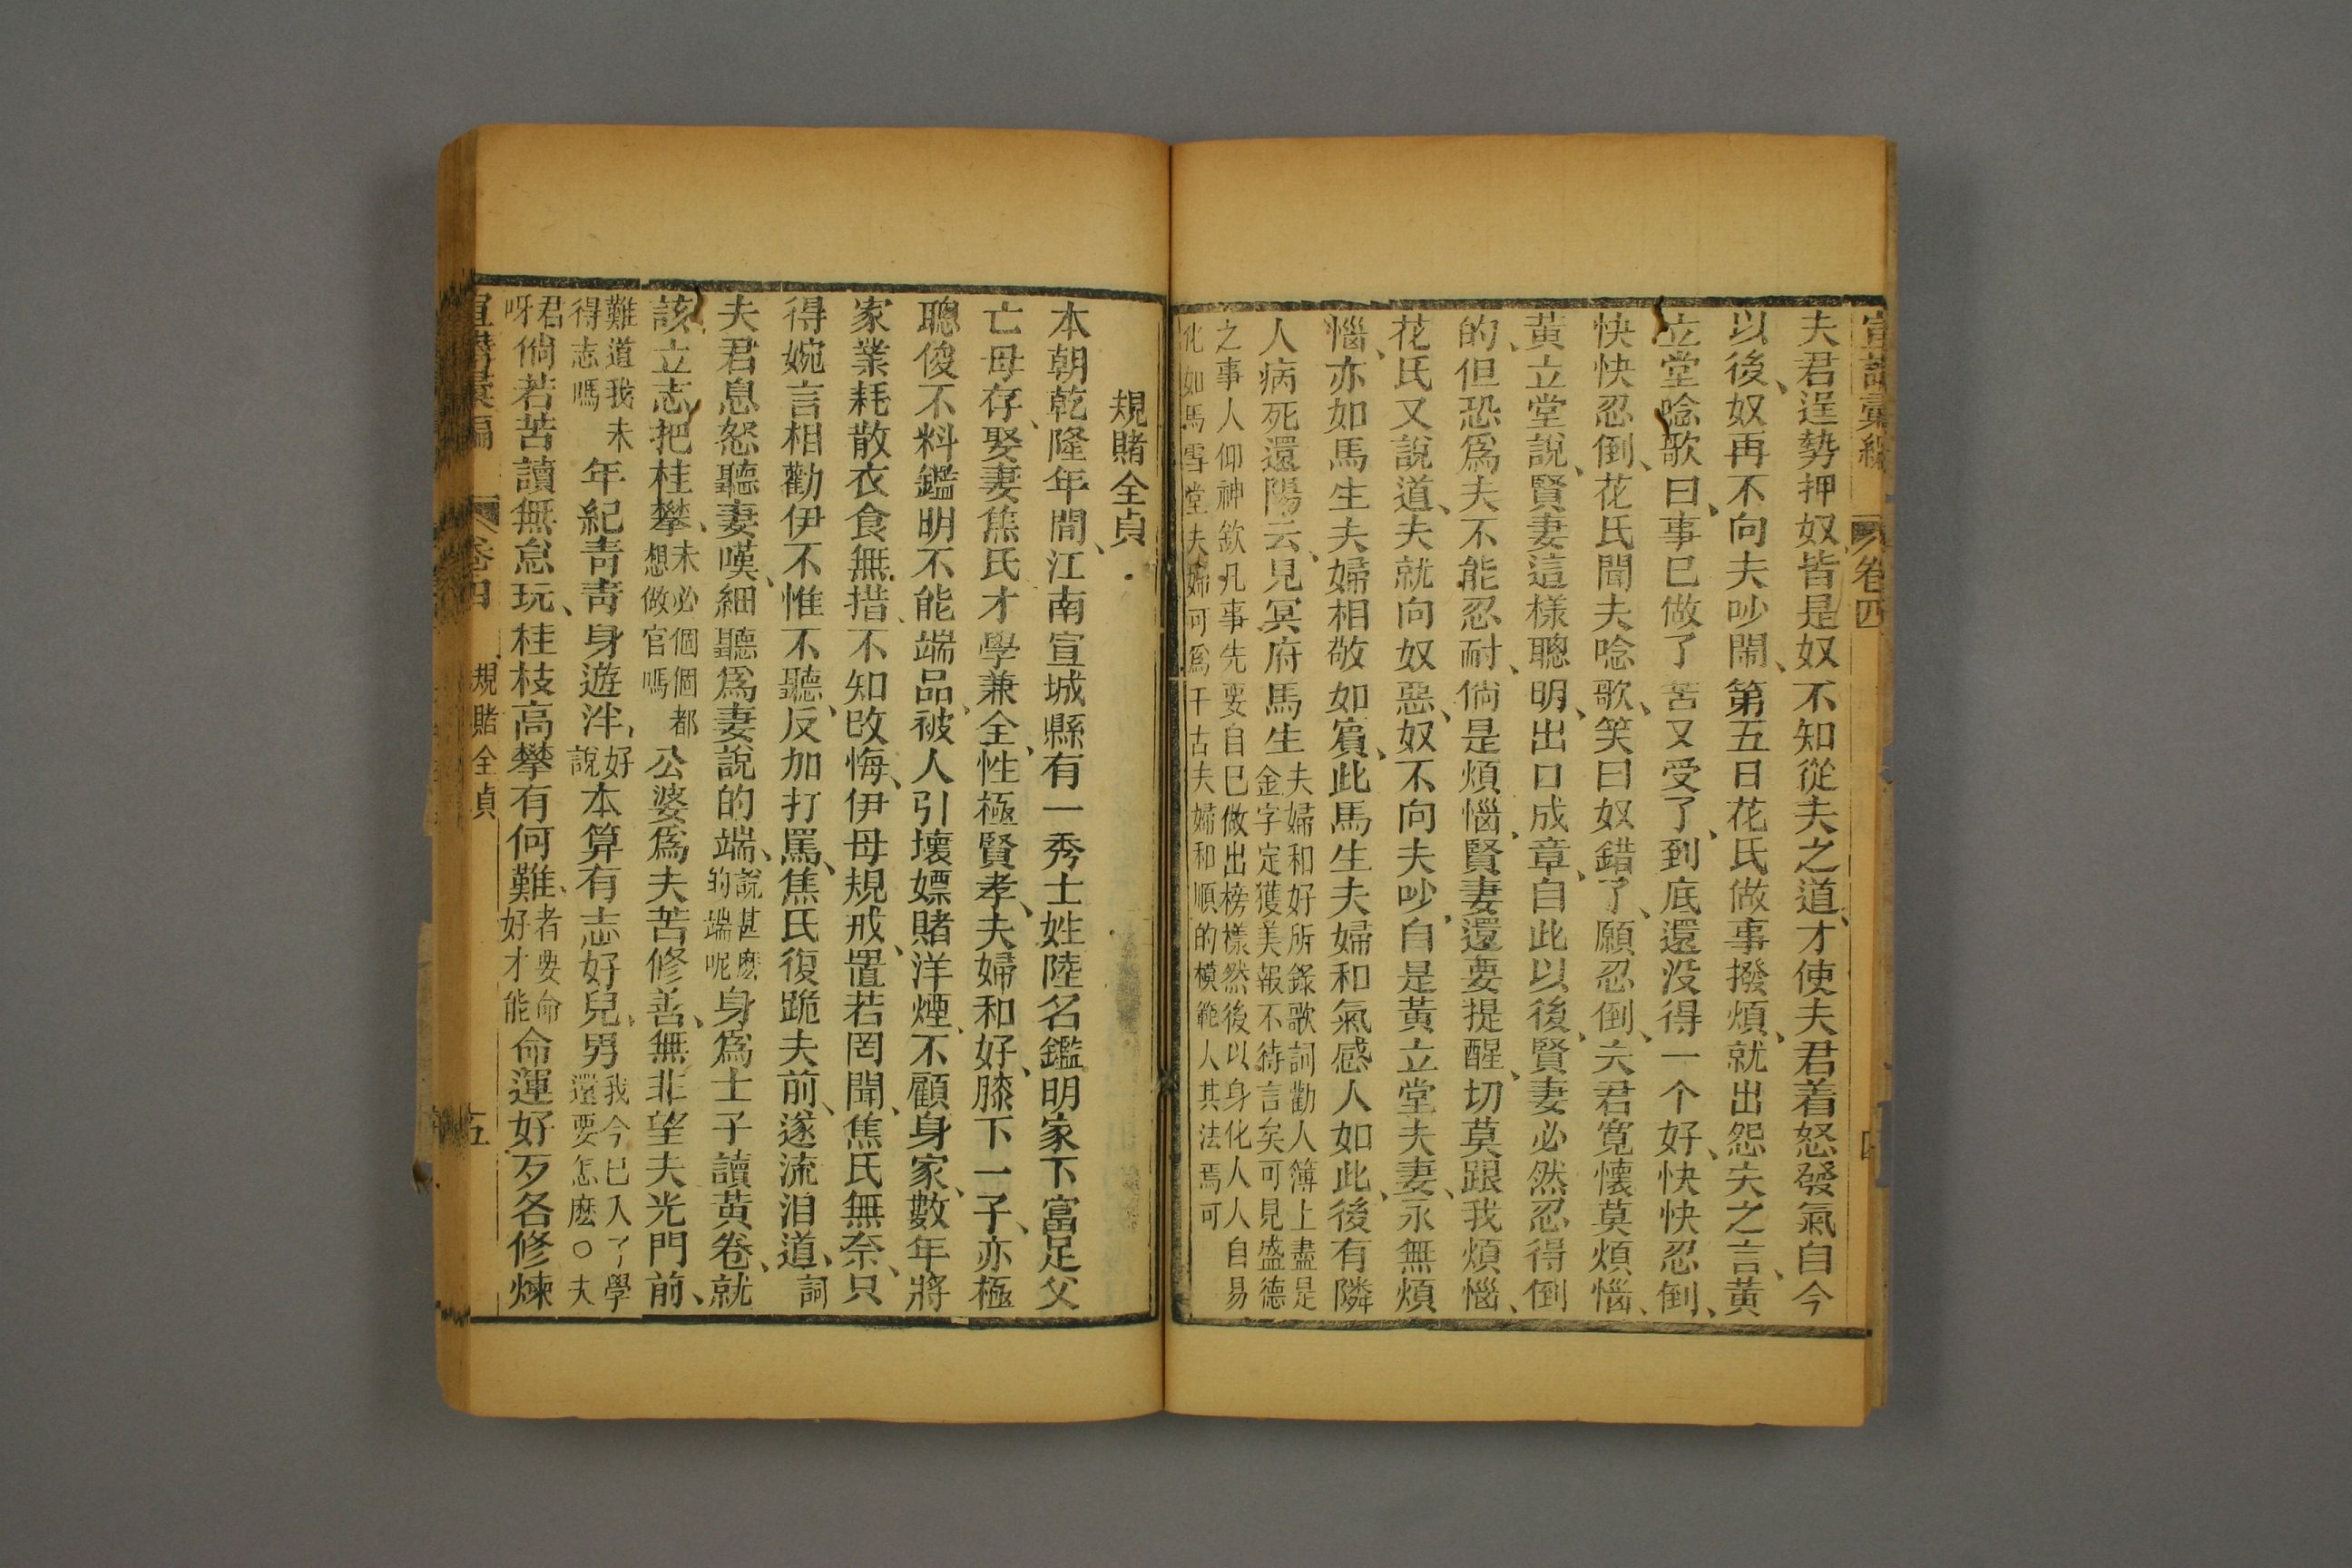 宣講彙編 卷四 四
夫君逞勢押奴皆是奴不知從夫之道、才使夫君着怒發氣自今
以後、奴再不向夫吵鬧、第五日花氏做事撥煩、就出怨夫之言、黃
立堂唸歌曰、事已做了苦又受了、到底還没得一个好、快快忍倒、
快快忍倒、花氏聞夫唸歌、笑曰奴錯了、願忍倒、夫君寬懷莫煩惱、
黃立堂說、賢妻這樣聰明、出口成章、自此以後、賢妻必然忍得倒
的、但恐爲夫不能忍耐、倘是煩惱、賢妻還要提醒、切莫跟我煩惱、
花氏又說道、夫就向奴惡、奴不向夫吵、自是黃立堂夫妻、永無煩
惱、亦如馬生夫婦相敬如賓、此馬生夫婦和氣感人如此、後有隣
人病死還陽云、見冥府馬生夫婦和好所錄歌詞勸人簿上盡是金字定獲美報不待言矣可見盛德
之事人仰神欽凡事先要自巳做出榜樣然後以身化人人自易
化如馬雪堂夫婦可爲千古夫婦和順的模範人其法焉可
規賭全貞
本朝乾隆年間、江南宣城縣有一秀士姓陸名鑑明家下富足父
亡母存、娶妻焦氏才學兼全、性極賢孝、夫婦和好、膝下一子、亦極
聰俊不料鑑明不能端品、被人引壞嫖賭洋煙、不顧身家、數年將
家業耗散衣食無措、不知改悔、伊母規戒、置若罔聞、焦氏無奈、只
得婉言相勸伊不惟不聽、反加打罵、焦氏復跪夫前、遂流泪道、詞
夫君息怒聽妻嘆、細聽爲妻說的端、說甚麽的端呢身爲士子讀黃卷、就
該立志把桂攀、未必個個都想做官嗎公婆爲夫苦修善、無非望夫光門前、
難道我未得志嗎年紀青青身遊泮、好說本算有志好兒男我今已入了學還要怎麽〇夫
君呀倘若苦讀無怠玩、桂枝高攀有何難、者要命好才能命運好歹各修煉
宣講彙編 卷四 規賭全貞 五